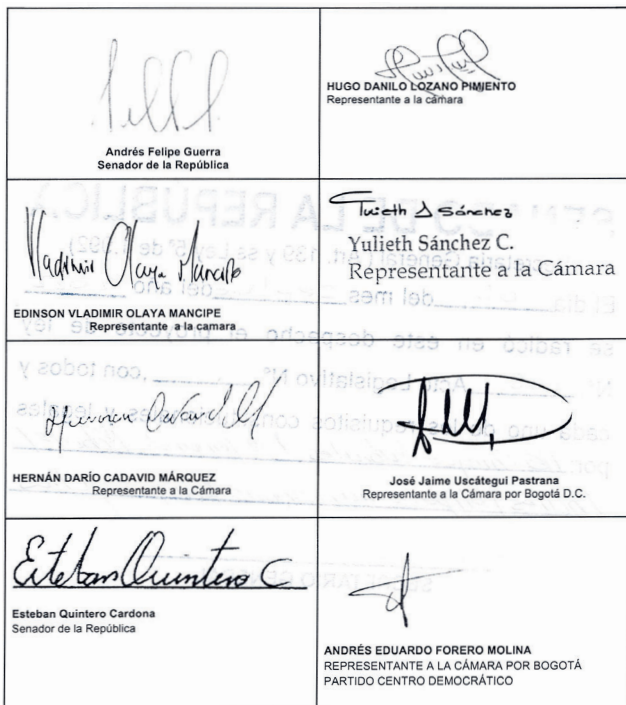 Andrés Felipe Guerra
Senador de la República
HUGO DANILO LOZANO PIMIENTO
Representante a la cámara
Vladimir Olaya Mancipe
EDINSON VLADIMIR OLAYA MANCIPE
Representante a la camara
Yulieth Sánchez
Yulieth Sánchez C.
Representante a la Cámara
HERNÁN DARÍO CADAVID MÁRQUEZ
Representante a la Cámara
José Jaime Uscátegui Pastrana
Representante a la Cámara por Bogotá D.C.
Esteban Quintero C
Esteban Quintero Cardona
Senador de la República
ANDRÉS EDUARDO FORERO MOLINA
REPRESENTANTE A LA CÁMARA POR BOGOTÁ
PARTIDO CENTRO DEMOCRÁTICO